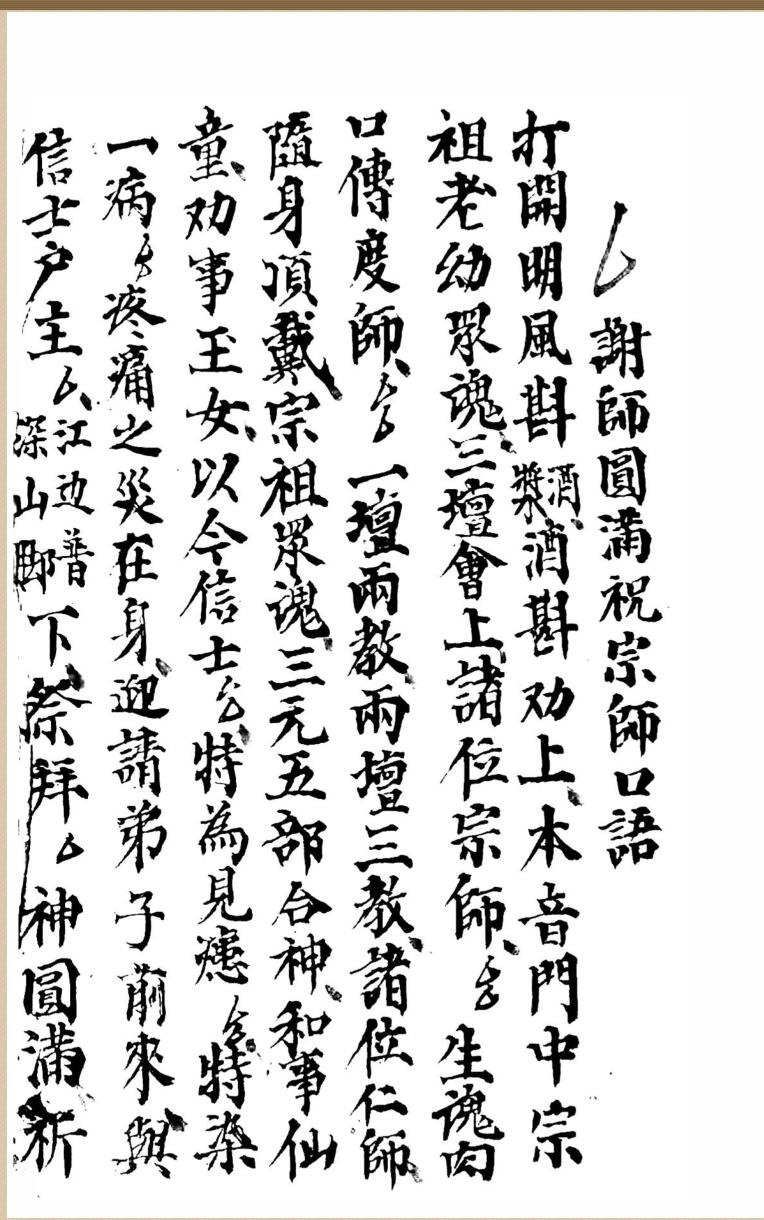 謝師圓滿祝宗師口語
打開明風斟酒漿酒斟劝上本音門中宗
祖老幼眾魂三壇會上諸位宗師厶生魂肉
口傳度師厶一壇兩教兩壇三教諸位仁師
隨身頂戴宗祖眾魂三元五部合神和事仙
童劝事玉女以今信士厶特為見患厶特染
一病厶疼痛之災在身迎請弟子前來與
信士户主厶江边普深山脚下祭拜厶神圓滿祈